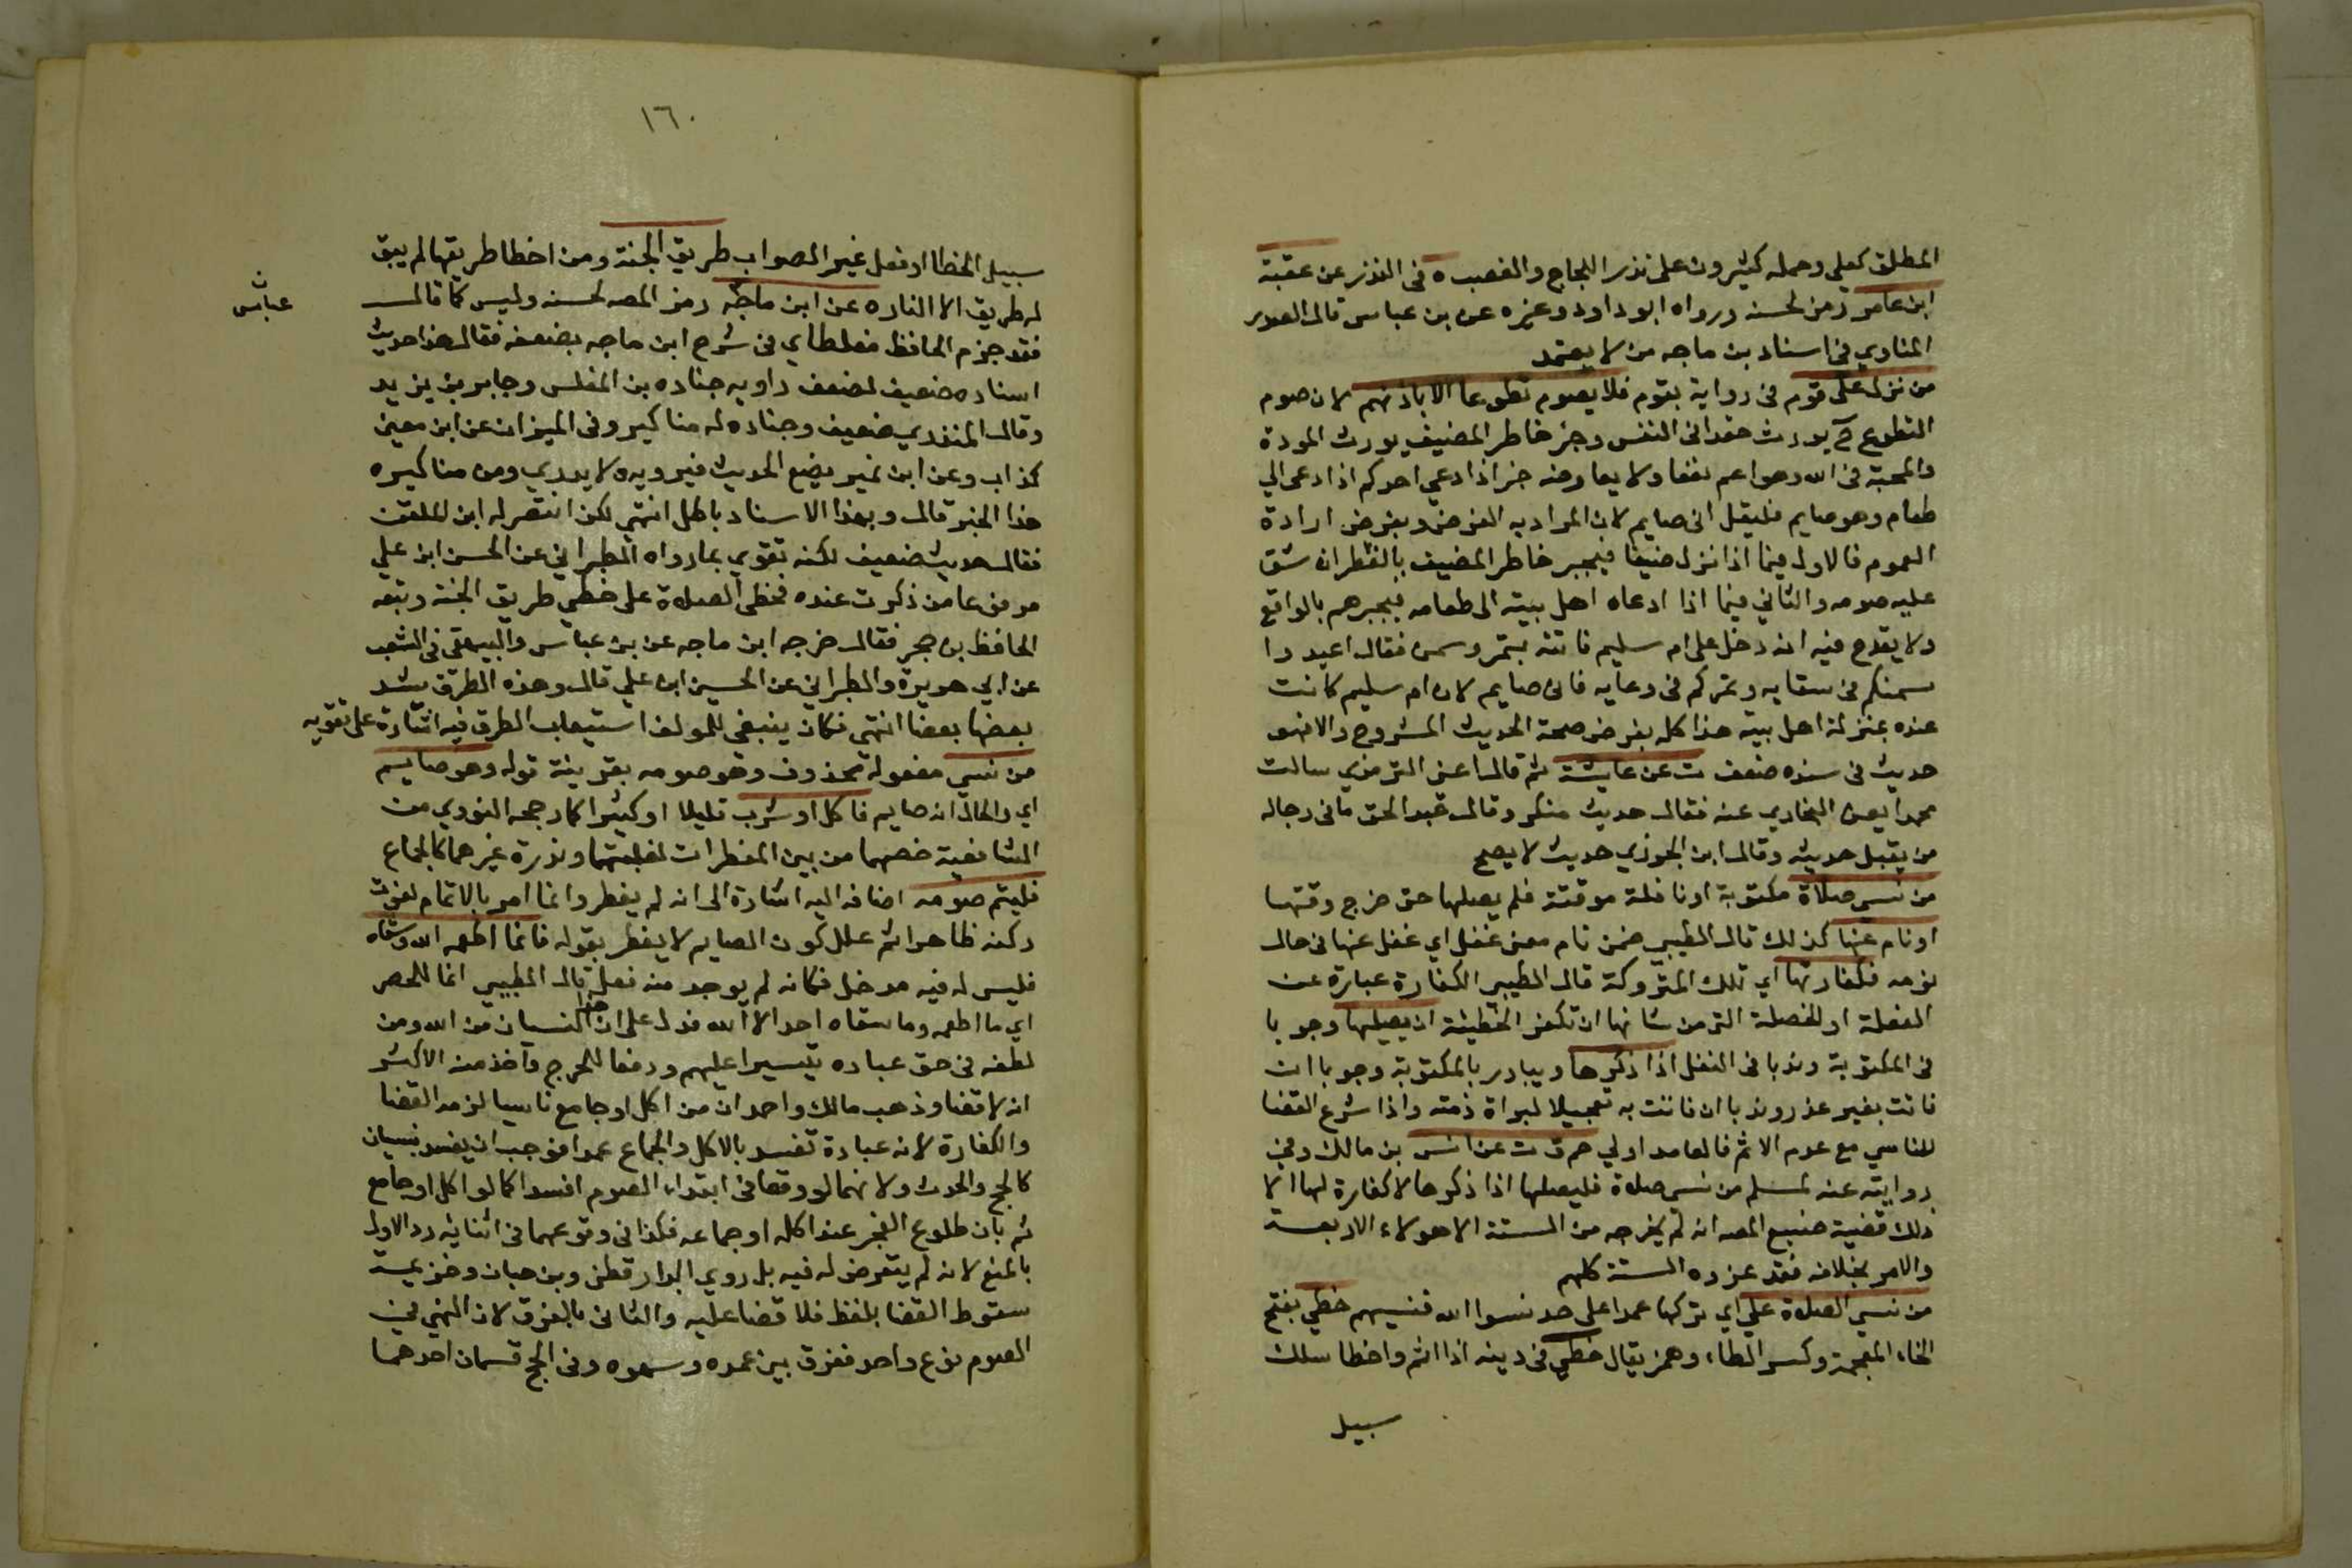 المطلق كعلي وحمله كثيرون على نذر اللجاج والغضب ه في النذر عن عقبة
ابن عامر رمز لحسنه ورواه ابو داود وغيره عن بن عباس قال الصدر
المناوي في اسناد بن ماجه من لا يعتمد
من نزل على قوم في رواية بقوم فلا يصوم تطوعا الا باذنهم لان صوم
التطوع يورث حقدا في النفس وجبر خاطر المضيف يورث المودة
والمحبة في الله وهو اعم نفعا ولا يعارضه خبر اذا دعي احدكم اذا دعى الي
طعام وهو صايم فليقل اني صايم لان المراد به الفرض وبفرض ارادة
العموم فالاول فيما اذا نزل ضيفا فيجبر خاطر المضيف بالفطر ان شق
عليه صومه والثاني فيما اذا ادعاه اهل بيته الى طعامه فيجبرهم بالواقع
ولا يقدح فيه انه دخل على ام سليم فاتته بتمر وسمن فقال اعيدوا
سمنكم في سقايه وتمركم في وعايه فاني صايم لان ام سليم كانت
عنده بمنزلة اهل بيته هذا كله بفرض صحة الحديث المشروح والا فهو
حديث في سنده ضعف ت عن عايشة ثم قال اعني الترمذي سالت
محمدا يعني البخاري عنه فقال حديث منكر وقال عبد الحق ما في رجاله
من يقبل حديثه وقال ابن الجوزي حديث لا يصح
من نسي صلاة مكتوبة او نافلة موقتة فلم يصلها حتى خرج وقتها
او نام عنها كذلك قال الطيبي ضمن نام معنى غفل اي غفل عنها في حال
نومه فكفارتها اي تلك المتروكة قال الطيبي الكفارة عبارة عن
الفعلة او للخصلة التي من شانها ان تكفر الخطيئة ان يصليها وجوبا
في المكتوبة وندبا في النفل اذا ذكرها ويبادر بالمكتوبة وجوبا ان
فاتت بغير عذر وندبا ان فاتت به تعجيلا لبراة ذمته واذا شرع القضا
للناسي مع عدم الاثم فالعامد اولي حم ق ت عن انس بن مالك وفي
روايته عنه لمسلم من نسي صلاة فليصلها اذا ذكرها لا كفارة لها الا
ذلك قضية صنيع المصه انه لم يخرجه من الستة الا هولاء الاربعة
والامر بخلافه فقد عزوه الستة كلهم
من نسي الصلاة علي اي تركها عمدا على حد نسوا الله فنسيهم خطي بفتح
الخاء المعجمة وكسر الطاء وهمز يقال خطي في دينه اذا اثم واخطا سلك
سبيل
١٦٠
سبيل الخطا او فعل غير الصواب طريق الجنة ومن اخطا طريقها لم يبق
له طريق الا النار ه عن ابن ماجه رمز المصه لحسنه وليس كما قال
عباس
فقد جزم الحافظ مغلطاي في شرح ابن ماجه بضعفه فقال هذا حديث
اسناده ضعيف لضعف راويه جناده بن المغلس وجابر بن يزيد
وقال المنذري ضعيف وجناده له مناكير وفي الميزان عن ابن معين
كذاب وعن ابن نمير يضع الحديث فيرويه ولا يدري ومن مناكيره
هذا الخبر قال وبهذا الاسناد باطل انتهى لكن انتصر له ابن الملقن
فقال حديث ضعيف لكنه تقوي بما رواه الطبراني عن الحسن ابن علي
مرفوعا من ذكرت عنده فخطى الصلاة علي خطي طريق الجنة وتبعه
الحافظ بن حجر فقال خرجه ابن ماجه عن بن عباس والبيهقي في الشعب
عن ابي هويرة والطبراني عن الحسين ابن علي قال وهذه الطرق يشد
بعضها بعضا انتهى فكان ينبغي للمولف استيعاب الطرق فيه اشارة على تقويه
من نسي مفعوله محذوف وهو صومه بقرينة قوله وهو صايم
اي والحال انه صايم فاكل او شرب قليلا او كثيرا كما رجحه النووي من
الشافعية خصهما من بين المفطرات لغلبتهما وندرة غيرهما كالجماع
فليتم صومه اضافه اليه اشارة الى انه لم يفطر وانما امر بالاتمام لفوت
ركنه ظاهرا ثم علل كون الصايم لا يفطر بقوله فانما اطعمه الله وسقاه
فليس له فيه مدخل فكانه لم يوجد منه فعل قال الطيبي انما للحصر
اي ما اطعمه وما سقاه احد الا الله فدل على ان هذا النسيان من الله ومن
لطفه في حق عباده تيسيرا عليهم ودفعا للحرج واخذ منه الاكثر
انه لا قضا وذهب مالك واحمد ان من اكل او جامع ناسيا لزمه القضا
والكفارة لانه عبادة تفسد بالاكل والجماع عمدا فوجب ان يفسد بنسيان
كالحج والحدث ولانهما لو وقعا في ابتداء الصوم افسدا كما لو اكل او جامع
ثم بان طلوع الفجر عند اكله او جماعه فكذا في وقوعهما في اثنايه رد الاول
بالمنع لانه لم يتعرض له فيه بل روي الدارقطني وبن حبان وخزيمة
سقوط القضا بلفظ فلا قضا عليه والثاني بالفرق لان النهي في
الصوم نوع واحد ففرق بين عمده وسهوه وفي الحج قسمان احدهما